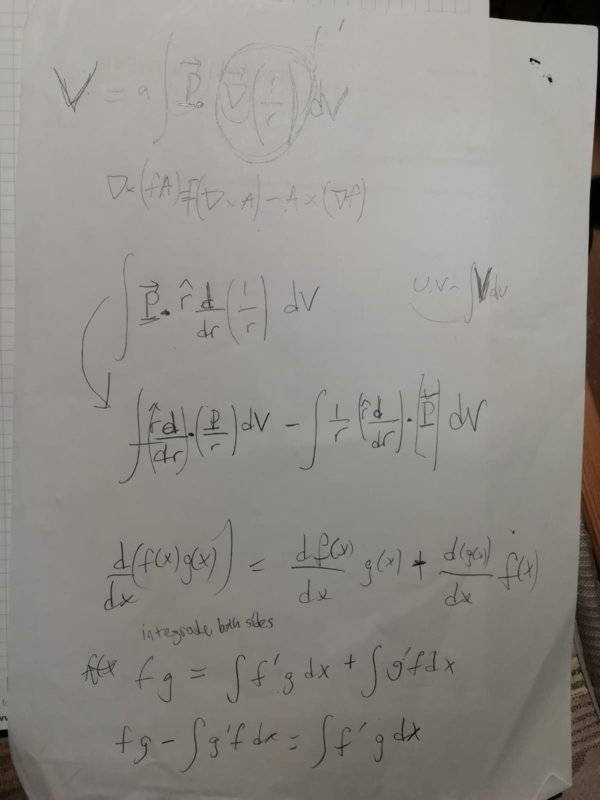 V = a ∫ P⃗ · ∇⃗ (1/r) dV
∇×(fA) = f(∇×A) − A×(∇f)
∫ P⃗ · r̂ d/dr (1/r) dV
u.v − ∫ V du
∫ (r̂ d/dr) · (P/r) dV − ∫ 1/r (r̂ d/dr) · [P⃗] dV
d/dx (f(x)g(x)) = d f(x)/dx g(x) + d(g(x))/dx f(x)
integrade both sides
f g = ∫ f' g dx + ∫ g' f dx
fg − ∫ g' f dx = ∫ f' g dx